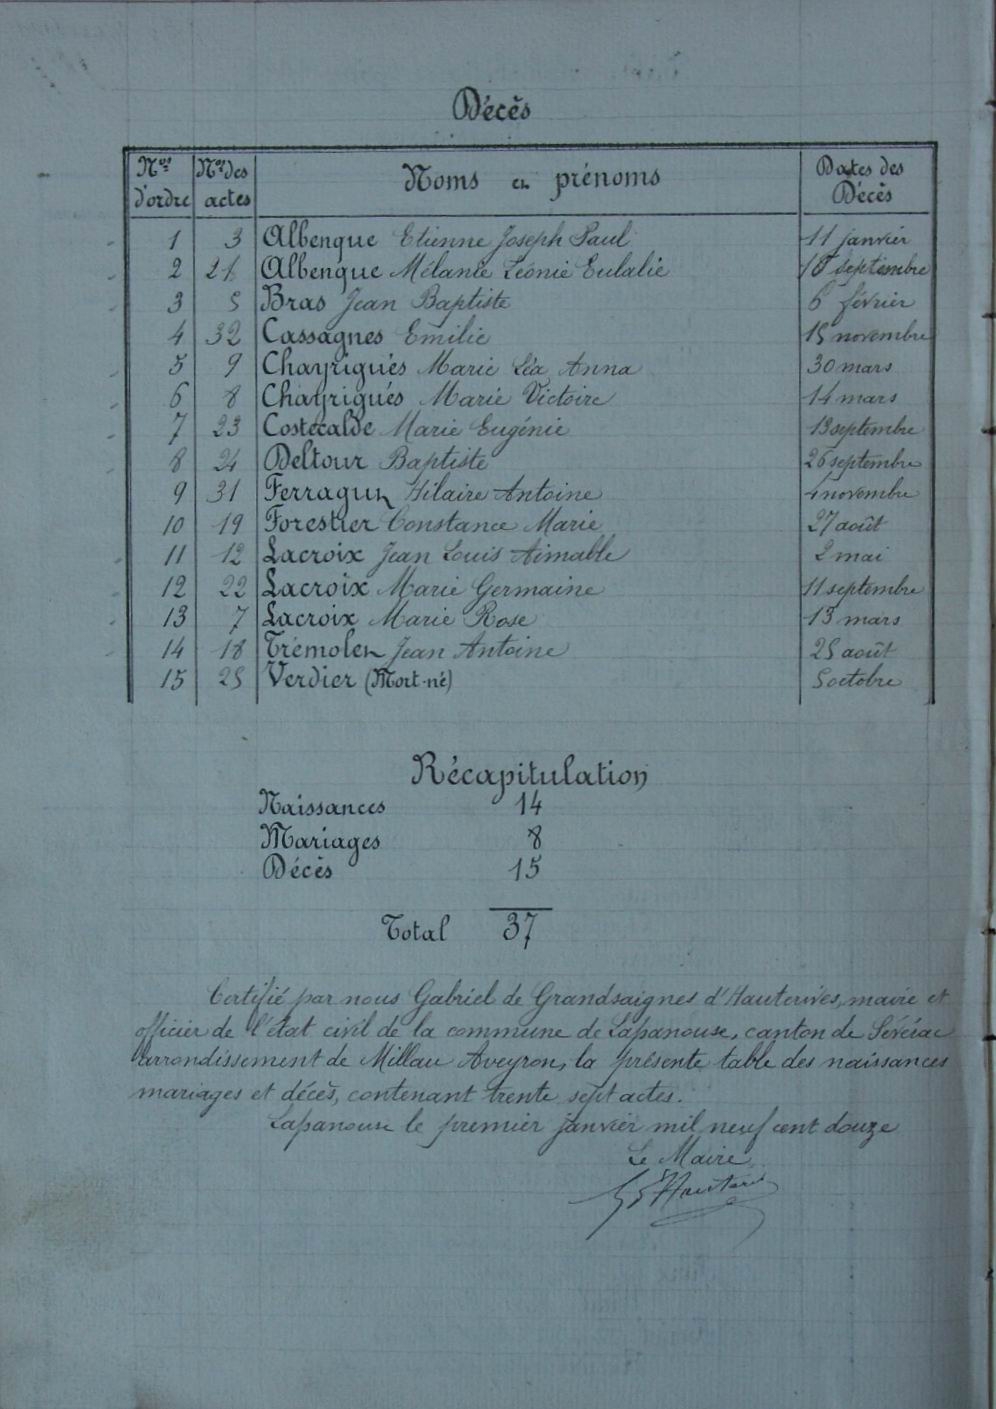 Décès
Nos d'ordre Nos des actes Noms et prénoms Dates des Décès
1 3 Albenque Etienne Joseph Paul 11 janvier
2 21 Albenque Mélanie Léonie Eulalie septembre
3 5 Bras Jean Baptiste 6 février
4 32 Cassagnes Emilie 15 novembre
5 9 Chayriguès Marie Léa Anna 30 mars
6 8 Chayriguès Marie Victoire 14 mars
7 23 Costecalde Marie Eugénie 13 septembre
8 24 Deltour Baptiste 26 septembre
9 31 Ferragut Hilaire Antoine 4 novembre
10 19 Forestier Constance Marie 27 août
11 12 Lacroix Jean Louis Aimable 2 mai
12 22 Lacroix Marie Germaine 11 septembre
13 7 Lacroix Marie Rose 13 mars
14 18 Trémolet Jean Antoine 25 août
15 25 Verdier (Mort-né) 5 octobre
Récapitulation
Naissances 14
Mariages 8
Décès 15
Total 37
Certifié par nous Gabriel de Grandsaignes d'Hauterives, maire et
officier de l'état civil de la commune de Lapanouse, canton de Sévérac
arrondissement de Millau Aveyron, la présente table des naissances
mariages et décès, contenant trente sept actes.
Lapanouse le premier janvier mil neuf cent douze
Le Maire